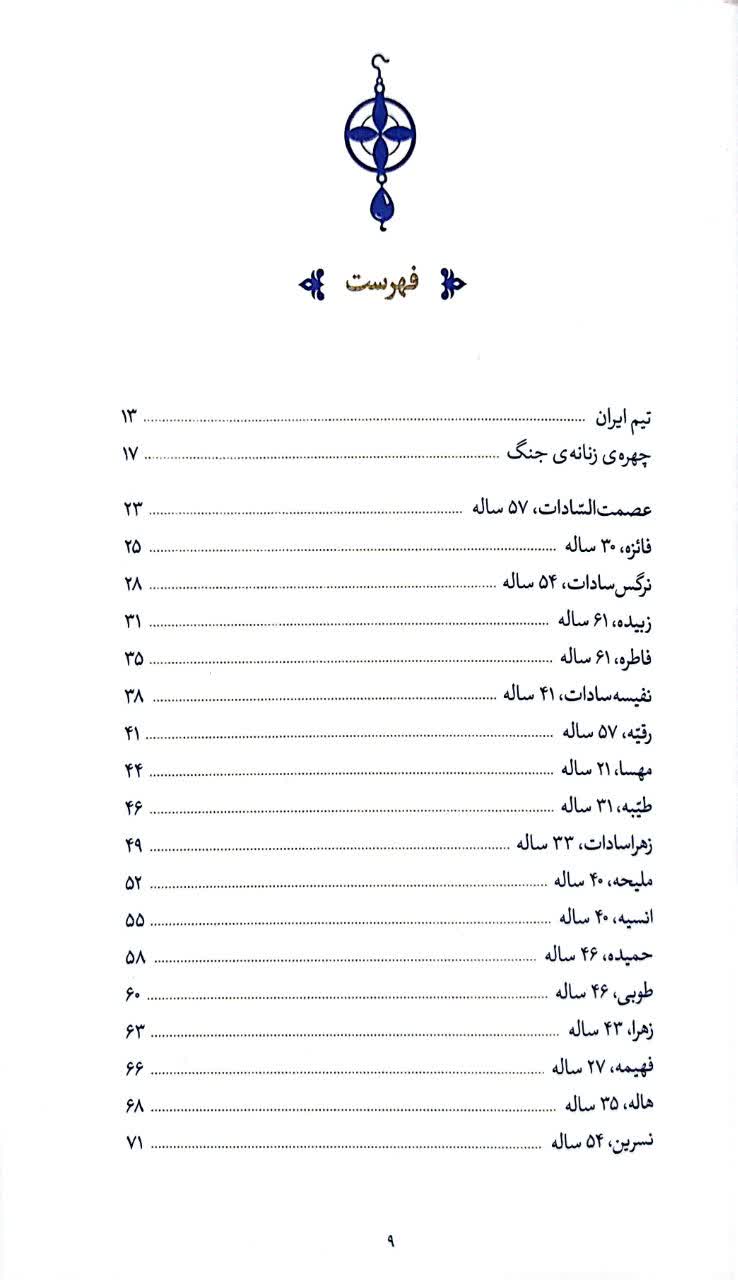 فهرست
تیم ایران ۱۳
چهره‌ی زنانه‌ی جنگ ۱۷
عصمت‌السّادات، ۵۷ ساله ۲۳
فائزه، ۳۰ ساله ۲۵
نرگس‌سادات، ۵۴ ساله ۲۸
زبیده، ۶۱ ساله ۳۱
فاطره، ۶۱ ساله ۳۵
نفیسه‌سادات، ۴۱ ساله ۳۸
رقیّه، ۵۷ ساله ۴۱
مهسا، ۲۱ ساله ۴۴
طیّبه، ۳۱ ساله ۴۶
زهراسادات، ۳۳ ساله ۴۹
ملیحه، ۴۰ ساله ۵۲
انسیه، ۴۰ ساله ۵۵
حمیده، ۴۶ ساله ۵۸
طوبی، ۴۶ ساله ۶۰
زهرا، ۴۳ ساله ۶۳
فهیمه، ۲۷ ساله ۶۶
هاله، ۳۵ ساله ۶۸
نسرین، ۵۴ ساله ۷۱
۹